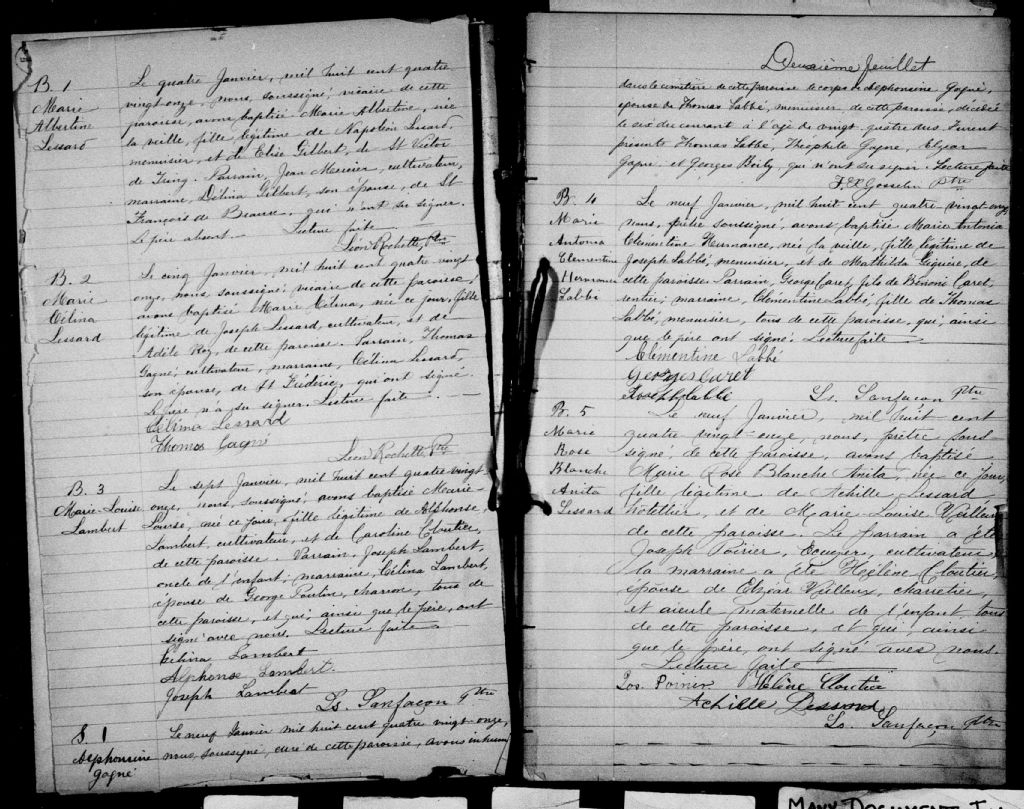 B. 1
Marie
Albertine
Lessard
Le quatre Janvier, mil huit cent quatre
vingt-onze, nous, soussigné, vicaire de cette
paroisse, avons baptisé Marie Albertine, née
la veille, fille légitime de Napoléon Lessard,
menuisier, et de Elise Gilbert, de St Victor
de Tring. Parrain, Jean Mercier, cultivateur,
marraine, Délina Gilbert, son épouse, de St
François de Beauce, qui n'ont su signer.
Le père absent. Lecture faite
Léon Rochette, Ptre
B. 2
Marie
Célina
Lessard
Le cinq Janvier, mil huit cent quatre vingt
onze, nous, soussigné, vicaire de cette paroisse,
avons baptisé Marie Célina, née ce jour, fille
légitime de Joseph Lessard, cultivateur, et de
Adèle Roy, de cette paroisse. Parrain, Thomas
Gagné, cultivateur, marraine, Célina Lessard,
son épouse, de St Fréderic, qui ont signé.
Le père n'a su signer. Lecture faite
Célina Lessard
Thomas Gagné
Léon Rochette, Ptre
B. 3
Marie-Louise
Lambert
Le sept Janvier, mil huit cent quatre vingt
onze, nous, soussigné, avons baptisé Marie
Louise, née ce jour, fille légitime de Alphonse
Lambert, cultivateur, et de Caroline Cloutier,
de cette paroisse. Parrain, Joseph Lambert,
oncle de l'enfant; marraine, Célina Lambert,
épouse de George Poulin, charron, tous de
cette paroisse, et qui, ainsi que le père, ont
signé avec nous. Lecture faite
Célina Lambert
Alphonse Lambert
Joseph Lambert
Ls. Sanfaçon Ptre
S 1
Alphonsine
Gagné
Le neuf Janvier mil huit cent quatre vingt-onze,
nous soussigné, curé de cette paroisse, avons inhumé
Deuxième feuillet
dans le cimetière de cette paroisse le corps de Alphonsine Gagné,
épouse de Thomas Labbé, menuisier, de cette paroisse, décédée
le six du courant à l'âge de vingt-quatre ans. Furent
présents Thomas Labbé, Théophile Gagné, Elzéar
Gagné, et Georges Boily, qui n'ont su signer. Lecture faite
Gosselin Ptre
B. 4
Marie
Antonia
Clementine
Hermance
Labbé
Le neuf Janvier, mil huit cent quatre vingt onze,
nous, prêtre soussigné, avons baptisé Marie Antonia
Clementine Hermance, née la veille, fille légitime de
Joseph Labbé, menuisier, et de Mathilda Giguère, de
cette paroisse. Parrain, George Caret, fils de Bénoni Caret,
rentier; marraine, Clementine Labbé, fille de Thomas
Labbé, menuisier, tous de cette paroisse, qui, ainsi
que le père ont signé. Lecture faite
Clémentine Labbé
Georges Curet
Joseph Labbé
Ls. Sanfaçon Ptre
B. 5
Marie
Rose
Blanche
Anita
Lessard
Le neuf Janvier, mil huit cent
quatre vingt-onze, nous, prêtre sous-
signé, de cette paroisse, avons baptisé
Marie Rose Blanche Anita, née ce jour,
fille légitime de Achille Lessard,
hôtellier, et de Marie-Louise Veilleux
de cette paroisse. Le parrain a été
Joseph Poirier, Ecuyer, cultivateur,
la marraine a été Hélène Cloutier,
épouse de Elzéar Veilleux, charretier,
et aieule maternelle de l'enfant, tous
de cette paroisse, et qui, ainsi
que le père, ont signé avec nous.
Lecture faite
Jos. Poirier Hélène Cloutier
Achille Lessard
Ls. Sanfaçon Ptre
MANY DOCUMENT